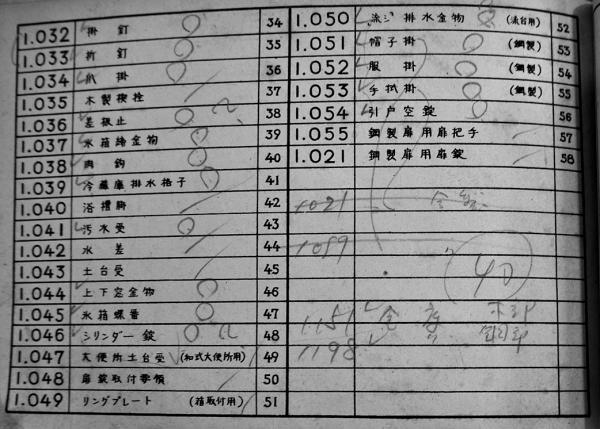 1.032 掛釘 34
1.033 折釘 35
1.034 爪掛 36
1.035 木製楔栓 37
1.036 差板止 38
1.037 氷箱締金物 39
1.038 肉鈎 40
1.039 冷蔵庫排水格子 41
1.040 浴槽脚 42
1.041 汚水受 43
1.042 水差 44
1.043 土台受 45
1.044 上下窓金物 46
1.045 氷箱蝶番 47
1.046 シリンダー錠 48
1.047 大便所土台受 (和式大便所用) 49
1.048 扉錠取付要領 50
1.049 リングプレート (箱取付用) 51
1.050 流シ排水金物 (流台用) 52
1.051 帽子掛 (鋼製) 53
1.052 服掛 (鋼製) 54
1.053 手拭掛 (鋼製) 55
1.054 引戸空錠 56
1.055 鋼製扉用扉把手 57
1.021 鋼製扉用扉錠 58
1021
1099
40
1151
1198